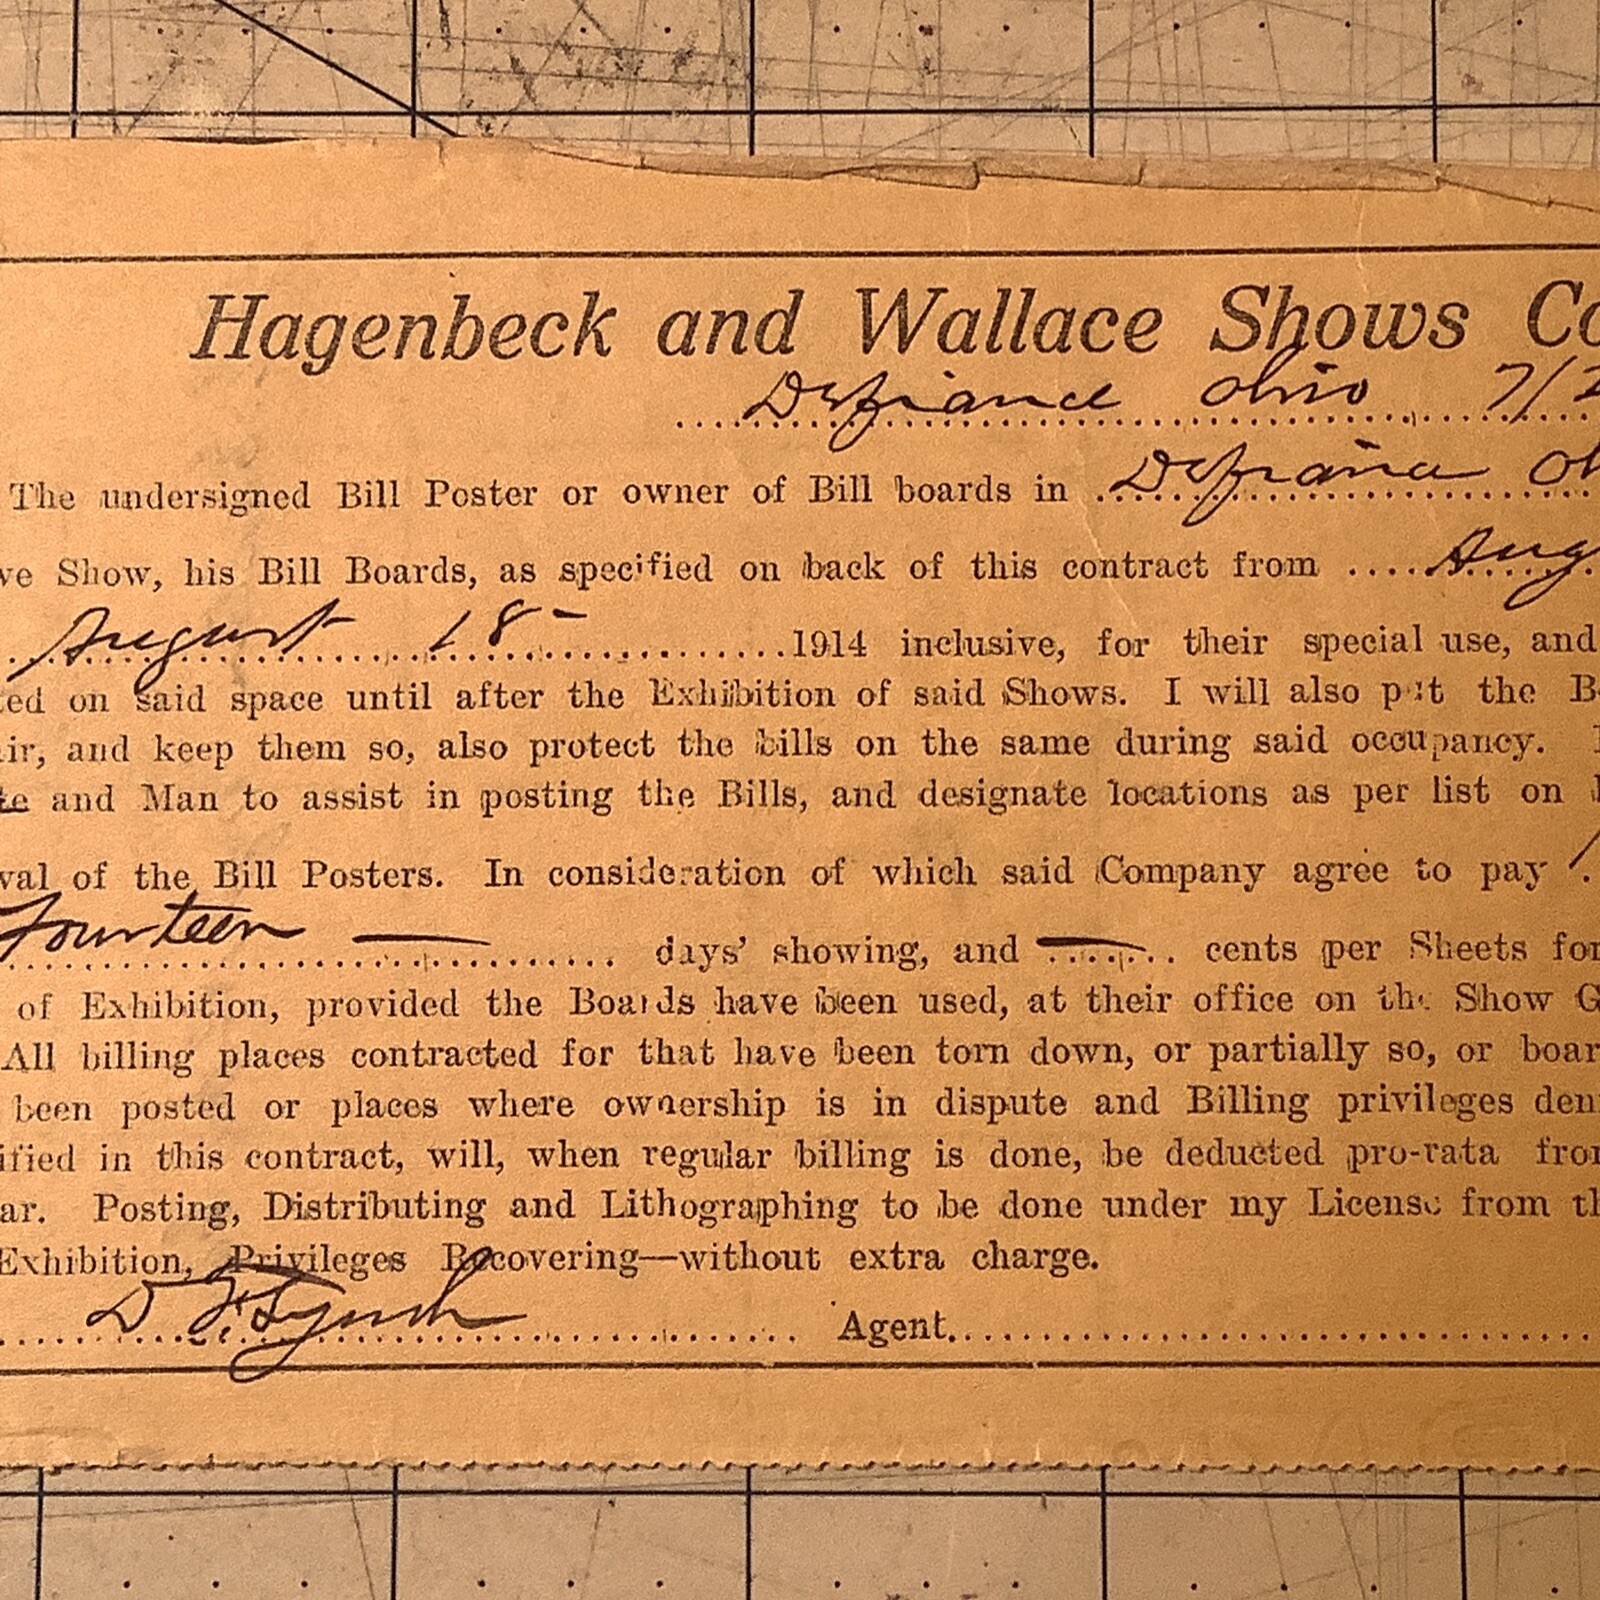 Hagenbeck and Wallace Shows Co
Defiance Ohio 7/2
The undersigned Bill Poster or owner of Bill boards in Defiance Oh
ve Show, his Bill Boards, as specified on back of this contract from Aug
August 18 - 1914 inclusive, for their special use, and
ted on said space until after the Exhibition of said Shows. I will also put the B
ir, and keep them so, also protect the bills on the same during said occupancy.
te and Man to assist in posting the Bills, and designate locations as per list on
val of the Bill Posters. In consideration of which said Company agree to pay
Fourteen — days' showing, and — cents per Sheets for
of Exhibition, provided the Boards have been used, at their office on the Show G
All billing places contracted for that have been torn down, or partially so, or boar
been posted or places where ownership is in dispute and Billing privileges den
ified in this contract, will, when regular billing is done, be deducted pro-rata from
ar. Posting, Distributing and Lithographing to be done under my License from th
Exhibition, Privileges Recovering—without extra charge.
D F Lynch Agent